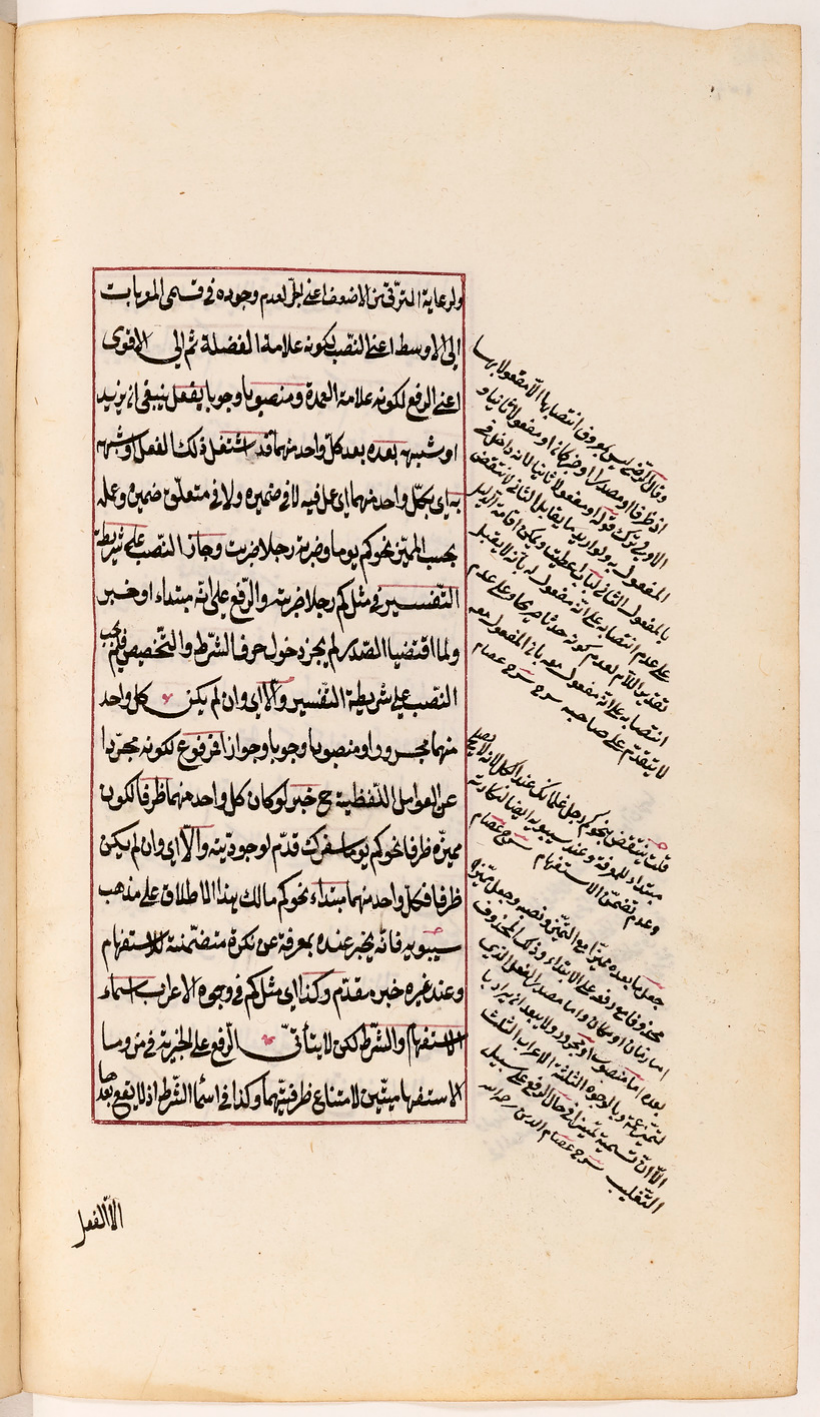 ولرعاية الترقي من الاضعف اعني الجر لعدم وجوده في قسمي المعربات
الى الاوسط اعني النصب لكونه علامة الفضلة ثم الى الاقوى
اعني الرفع لكونه علامة العمدة ومنصوبا وجوبا بفعل ينبغي ان يزيد
او شبهه بعده بعد كل واحد منهما قد اشتغل ذلك الفعل او شبهه
به اي بكل واحد منهما اي عمل فيه لا في ضميره ولا في متعلق ضميره وعمله
بحسب المميز نحو كم يوما وضربة رجلا ضربت وجاز النصب على شريطة
التفسير في مثل كم رجلا ضربته والرفع على انه مبتداء او خبر
ولما اقتضيا الصدر لم يجز دخول حرف الشرط والتخصيص فلم يجب
النصب على شريطة التفسير والا اي وان لم يكن كل واحد
منهما مجرورا ومنصوبا وجوبا وجوازا فمرفوع لكونه مجردا
عن العوامل اللفظية ح خبر لو كان كل واحد منهما ظرفا لكون
مميزه ظرفا نحو كم يوما سفرك قدم لوجوديته والا اي وان لم يكن
ظرفا فكل واحد منهما مبتداء نحو كم مالك بهذا الاطلاق على مذهب
سيبويه فانه يخبر عنده بمعرفة عن نكرة متضمنة للاستفهام
وعند غيره خبر مقدم وكذا اي مثل كم في وجوه الاعراب اسماء
الاستفهام والشرط لكن لا يتأتى الرفع على الخبرية في من وما
الاستفهاميتين لامتناع ظرفيتهما وكذا في اسماء الشرط اذ لا يقع بعدها
الا الفعل
وقال الرضي ليس معروف انتصابها الا مفعولا بها
او ظرفا او مصدرا او خبر كان او مفعولا ثانيا و
الاولى ترك قوله او مفعولا ثانيا لانه داخل في
المفعول به ولو اريد ما يقابل الثاني لانتقض
بالمفعول الثاني لباب اعطيت ويمكن اقامة الدليل
على عدم انتصابه على انه مفعول له بانه لا يقبل
تقدير اللام لعدم كونه حدثا صريحا وعلى عدم
انتصابه على انه مفعول معه بان المفعول معه
لا يتقدم على صاحبه شرح عصام
قلت ينتقض بنحو كم رجل غلامك عند الكل لانه لا يصلح
مبتداء للمعرفة وعند سيبويه ايضا لنكارته
وعدم تضمن الاستفهام شرح عصام
جعل ما بعده مميزا مع التميز ونصبه وجعل مميزه
محذوفا مع رفعه على الابتداء وذلك المحذوف
اما زمان او مكان واما مصدر الفعل الذي
بعده اما منصوب او مجرور ولا يبعد ان يراد با
لتمييز عمة وبالوجوه الثلثة الاعراب الثلث
الا ان تسمية تمييزا في حال الرفع على سبيل
التغليب شرح عصام الدين رحمه الله